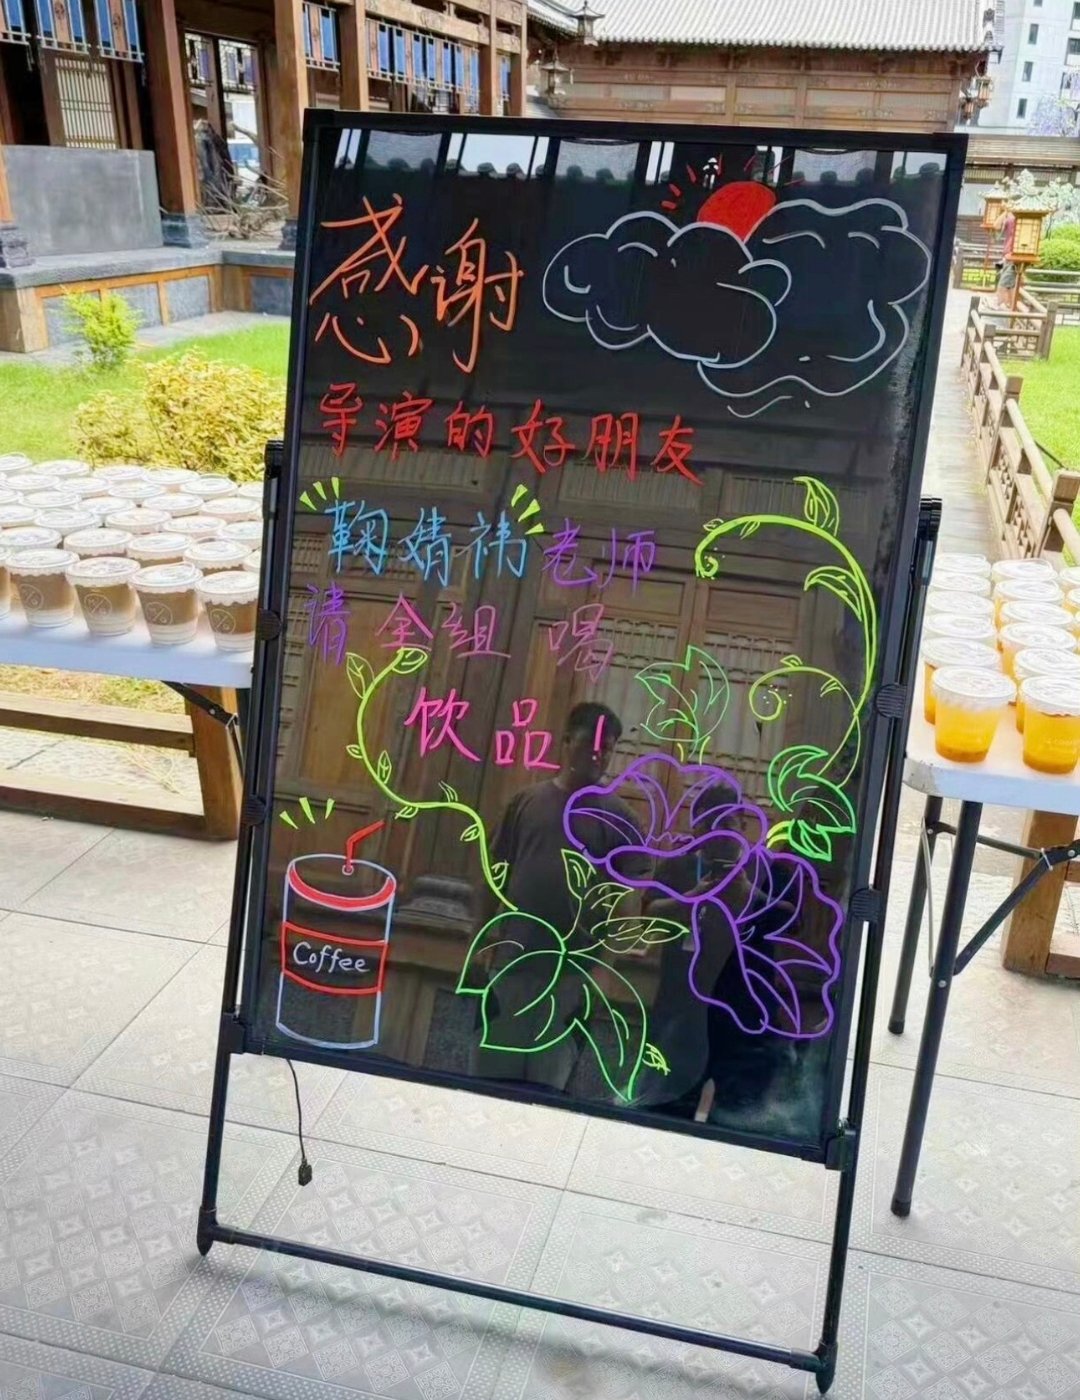 感谢
导演的好朋友
鞠婧祎老师
请全组喝
饮品！
Coffee